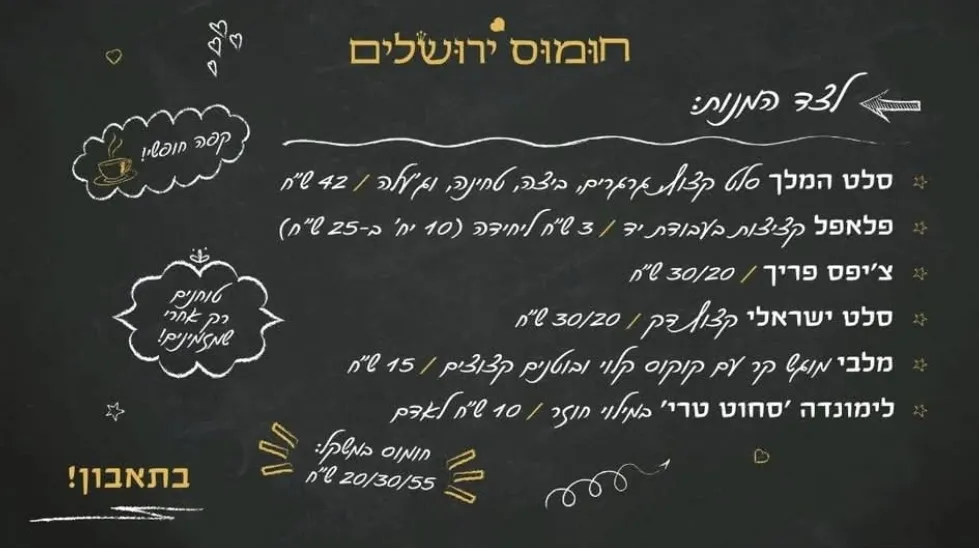 חומוס ירושלים
לצד המנות:
קפה חופשי!
סלט המלך סלט קצוץ, גרגרים, ביצה, טחינה, וג'עלה / 42 ש"ח
פלאפל קציצות בעבודת יד / 3 ש"ח ליחידה (10 יח' ב-25 ש"ח)
צ'יפס פריך / 30/20 ש"ח
סלט ישראלי קצוץ דק / 30/20 ש"ח
מלבי מוגש קר עם קוקוס קלוי ובוטנים קצוצים / 15 ש"ח
לימונדה 'סחוט טרי' במילוי חוזר / 10 ש"ח לאדם
טוחנים
רק אחרי
שמזמינים!
חומוס במשקל:
20/30/55 ש"ח
בתאבון!